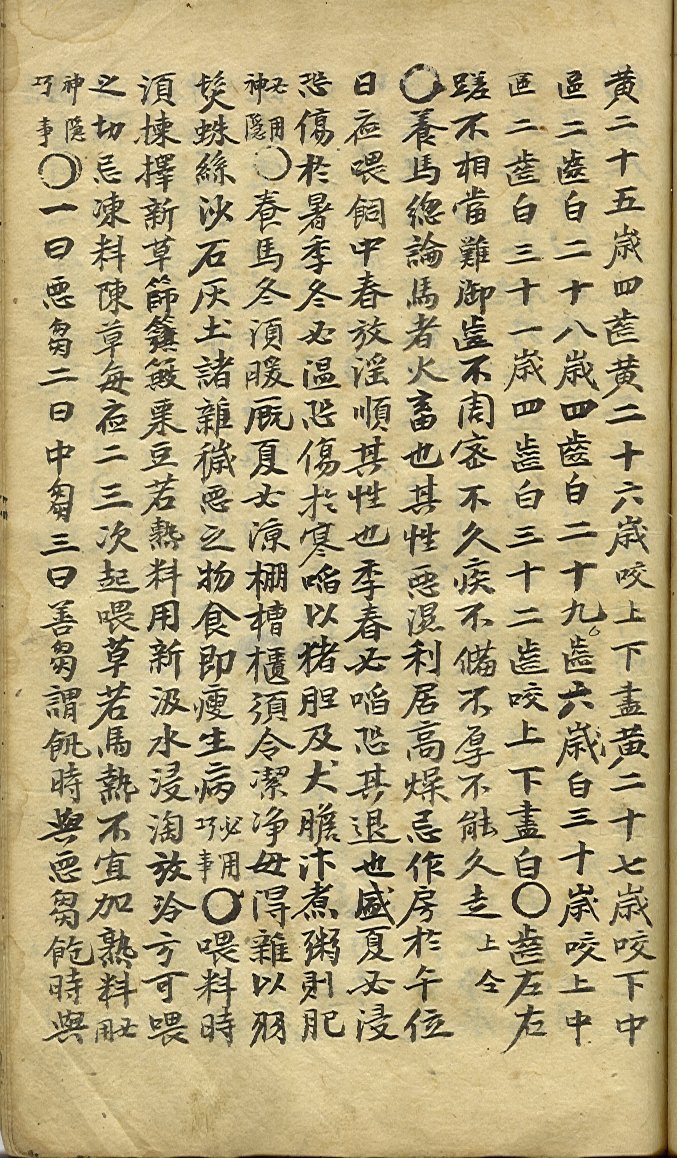 黄二十五歲四齒黄二十六歲咬上下盡黄二十七歲咬下中
區二齒白二十八歲四齒白二十九齒六歲白三十歲咬上中
區二齒白三十一歲四齒白三十二齒咬上下盡白〇齒左右
蹉不相當難御齒不周密不久疾不備不厚不能久走上仝
〇養馬總論馬者火畜也其性惡濕利居高燥忌作房於午位
日夜喂飼中春放淫順其性也季春必啗恐其退也盛夏必浸
恐傷於暑季冬必温恐傷於寒啗以猪胆及犬膽汴煮粥則肥
必用神隱〇養馬冬湏暖厩夏必凉棚槽櫃須令潔净毋淂雜以羽
髮蛛絲沙石灰土諸雜穢惡之物食即瘦生病必用巧事〇喂料時
湏揀擇新草篩簸粟豆若熟料用新汲水浸淘放冷方可喂
之切忌凍料陳草每夜二三次起喂草若馬熱不宜加熟料必用
神隱巧事〇一曰惡芻二曰中芻三曰善芻謂飢時與惡芻飽時與